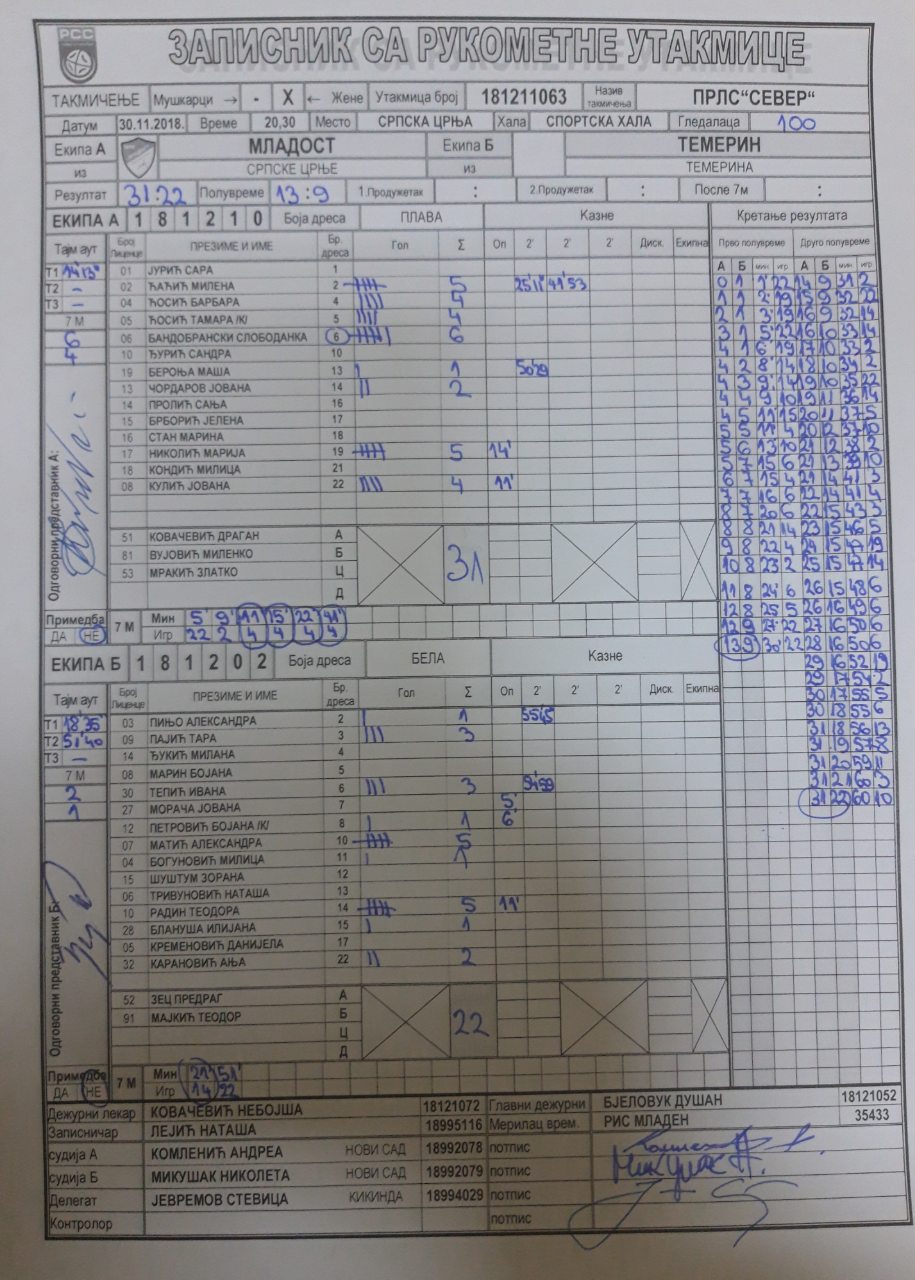 РСС
ЗАПИСНИК СА РУКОМЕТНЕ УТАКМИЦЕ
ТАКМИЧЕЊЕ Мушкарци → - X ← Жене Утакмица број 181211063 Назив такмичења ПРЛС“СЕВЕР“
Датум 30.11.2018. Време 20,30 Место СРПСКА ЦРЊА Хала СПОРТСКА ХАЛА Гледалаца 100
Екипа А МЛАДОСТ Екипа Б ТЕМЕРИН
из СРПСКЕ ЦРЊЕ из ТЕМЕРИНА
Резултат 31:22 Полувреме 13:9 1.Продужетак : 2.Продужетак : После 7м :
ЕКИПА А 1 8 1 2 1 0 Боја дреса ПЛАВА Казне Кретање резултата
Тајм аут Број Лиценце ПРЕЗИМЕ И ИМЕ Бр. дреса Гол Σ Оп 2' 2' 2' Диск. Екипна Прво полувреме Друго полувреме
А Б мин игр А Б мин игр
Т1 14'13"
Т2 –
Т3 –
7 М
6
4
01 ЈУРИЋ САРА 1
02 ЋАЋИЋ МИЛЕНА 2 5 25'11" 41'53
04 ЋОСИЋ БАРБАРА 4 4
05 ЋОСИЋ ТАМАРА /К/ 5 4
06 БАНДОБРАНСКИ СЛОБОДАНКА 6 6
10 ЂУРИЋ САНДРА 10
19 БЕРОЊА МАША 13 1 50'29
13 ЧОРДАРОВ ЈОВАНА 14 2
14 ПРОЛИЋ САЊА 16
15 БРБОРИЋ ЈЕЛЕНА 17
16 СТАН МАРИНА 18
17 НИКОЛИЋ МАРИЈА 19 5 14'
18 КОНДИЋ МИЛИЦА 21
08 КУЛИЋ ЈОВАНА 22 4 11'
51 КОВАЧЕВИЋ ДРАГАН А
81 ВУЈОВИЋ МИЛЕНКО Б 31
53 МРАКИЋ ЗЛАТКО Ц
Д
Одговорни представник А:
Примедба ДА НЕ
7 М Мин 5' 9' 11 15' 22' 41'
Игр 22 2 4 4 4 4
0 1 1' 22 14 9 31 2
1 1 2' 19 15 9 32 22
2 1 3' 19 16 9 32 14
3 1 5' 22 16 10 33 14
4 1 6' 19 17 10 33 2
4 2 8' 14 18 10 34 2
4 3 9' 14 19 10 35 22
4 4 9 10 19 11 36 14
4 5 11' 15 20 11 37 5
5 5 11' 4 20 12 37 10
5 6 13 10 21 12 38 2
5 7 15 6 21 13 39 10
6 7 15 4 21 14 41 3
7 7 16 6 22 14 41 4
8 7 20 6 22 15 43 3
8 8 21 14 23 15 46 5
9 8 22 4 24 15 47 19
10 8 23 2 25 15 47 14
11 8 24' 6 26 15 48 6
12 8 25 5 26 16 49 6
12 9 27' 22 27 16 50 6
13 9 30' 22 28 16 50 6
29 16 52 19
29 17 54 2
30 17 55 5
30 18 55 6
31 18 56 13
31 19 57 8
31 20 59 11
31 21 60 3
31 22 60 10
ЕКИПА Б 1 8 1 2 0 2 Боја дреса БЕЛА Казне
Тајм аут Број Лиценце ПРЕЗИМЕ И ИМЕ Бр. дреса Гол Σ Оп 2' 2' 2' Диск. Екипна
Т1 18'35"
Т2 51'40
Т3 –
7 М
2
1
03 ПИЊО АЛЕКСАНДРА 2 1 55'45
09 ПАЈИЋ ТАРА 3 3
14 ЂУКИЋ МИЛАНА 4
08 МАРИН БОЈАНА 5
30 ТЕПИЋ ИВАНА 6 3 9'59
27 МОРАЧА ЈОВАНА 7 5'
12 ПЕТРОВИЋ БОЈАНА /К/ 8 1 6'
07 МАТИЋ АЛЕКСАНДРА 10 5
04 БОГУНОВИЋ МИЛИЦА 11 1
15 ШУШТУМ ЗОРАНА 12
06 ТРИВУНОВИЋ НАТАША 13
10 РАДИН ТЕОДОРА 14 5 11'
28 БЛАНУША ИЛИЈАНА 15 1
05 КРЕМЕНОВИЋ ДАНИЈЕЛА 17
32 КАРАНОВИЋ АЊА 22 2
52 ЗЕЦ ПРЕДРАГ А
91 МАЈКИЋ ТЕОДОР Б 22
Ц
Д
Одговорни представник Б:
Примедба ДА НЕ
7 М Мин 21' 51'
Игр 14 22
Дежурни лекар КОВАЧЕВИЋ НЕБОЈША 18121072 Главни дежурни БЈЕЛОВУК ДУШАН 18121052
Записничар ЛЕЈИЋ НАТАША 18995116 Мерилац врем. РИС МЛАДЕН 35433
судија А КОМЛЕНИЋ АНДРЕА НОВИ САД 18992078 потпис
судија Б МИКУШАК НИКОЛЕТА НОВИ САД 18992079 потпис
Делегат ЈЕВРЕМОВ СТЕВИЦА КИКИНДА 18994029 потпис
Контролор потпис